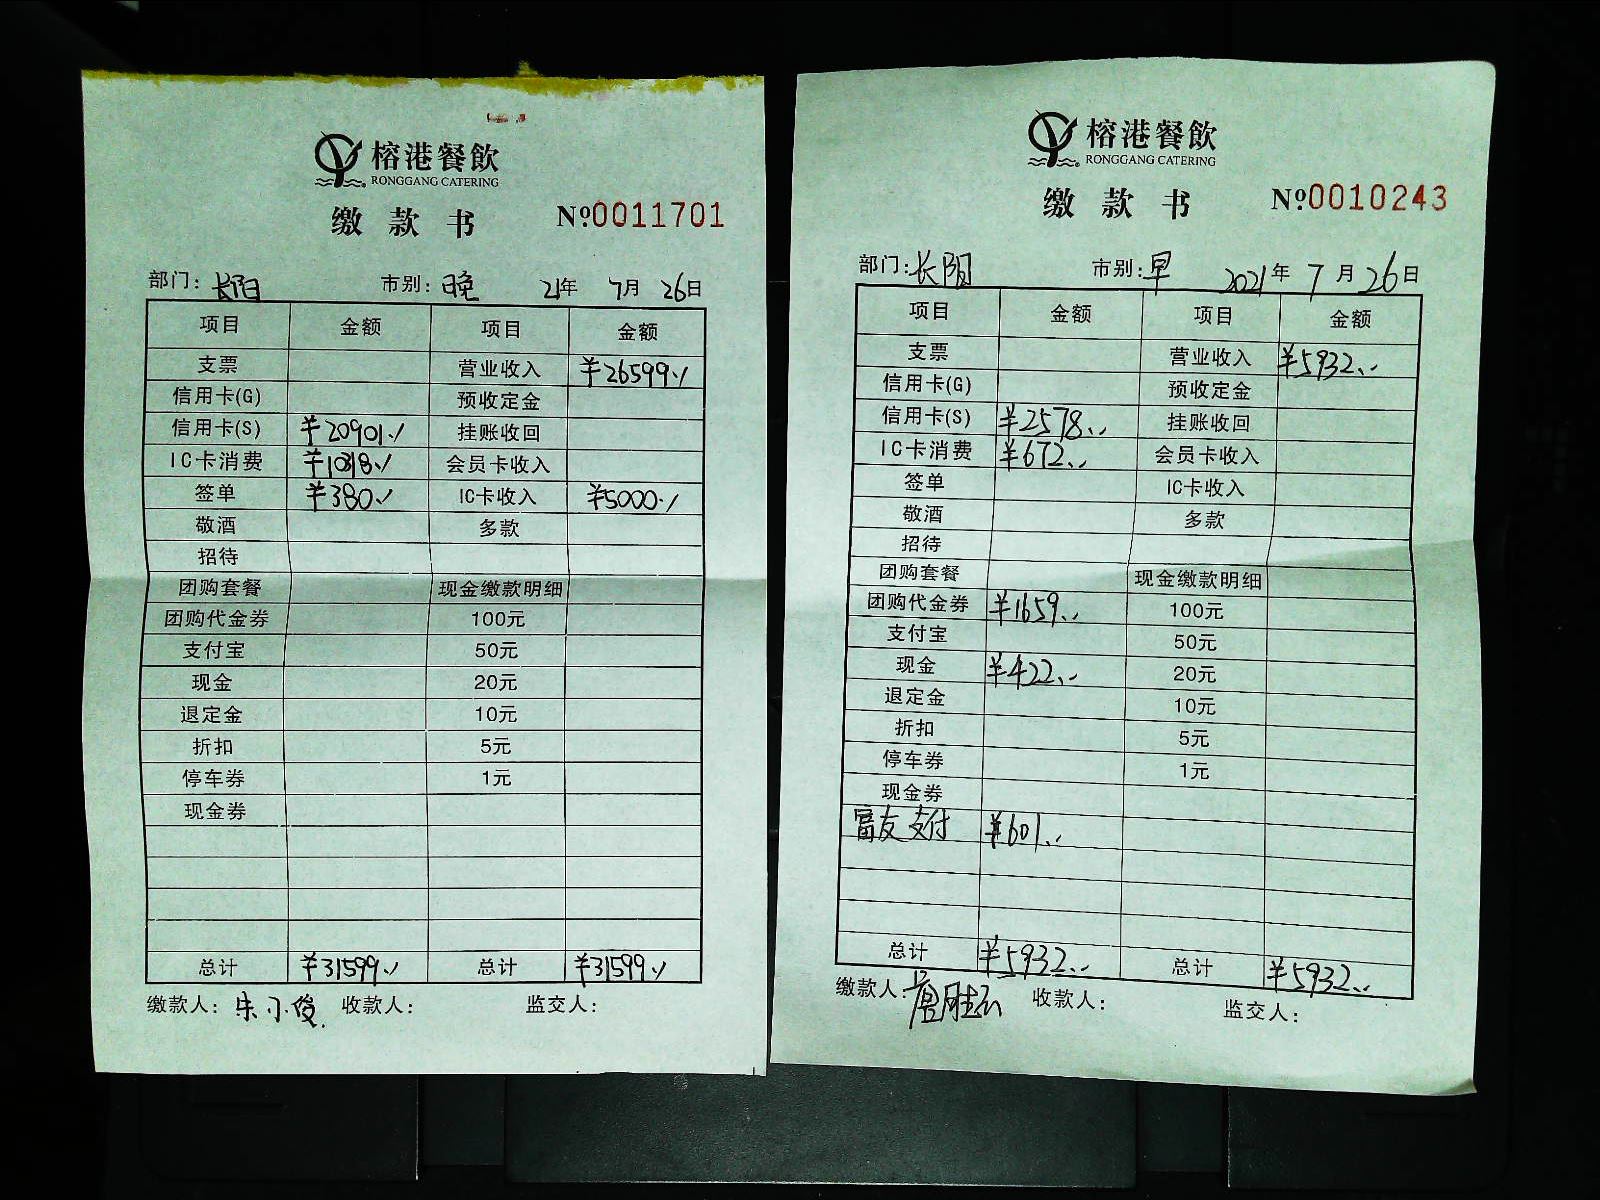 榕港餐飲
RONGGANG CATERING
缴款书 №0011701
部门: 长阳 市别: 晚 21年 7月 26日
项目 金额 项目 金额
支票 营业收入 ¥26599.
信用卡(G) 预收定金
信用卡(S) ¥20901. 挂账收回
IC卡消费 ¥10318. 会员卡收入
签单 ¥380. IC卡收入 ¥5000.
敬酒 多款
招待
团购套餐 现金缴款明细
团购代金券 100元
支付宝 50元
现金 20元
退定金 10元
折扣 5元
停车券 1元
现金券
总计 ¥31599. 总计 ¥31599.
缴款人: 朱小俊. 收款人: 监交人:
榕港餐飲
RONGGANG CATERING
缴款书 №0010243
部门: 长阳 市别: 早 2021年 7月 26日
项目 金额 项目 金额
支票 营业收入 ¥5932.
信用卡(G) 预收定金
信用卡(S) ¥2578. 挂账收回
IC卡消费 ¥672. 会员卡收入
签单 IC卡收入
敬酒 多款
招待
团购套餐 现金缴款明细
团购代金券 ¥1659. 100元
支付宝 50元
现金 ¥422. 20元
退定金 10元
折扣 5元
停车券 1元
现金券
富友支付 ¥601.
总计 ¥5932. 总计 ¥5932.
缴款人: 收款人: 监交人: